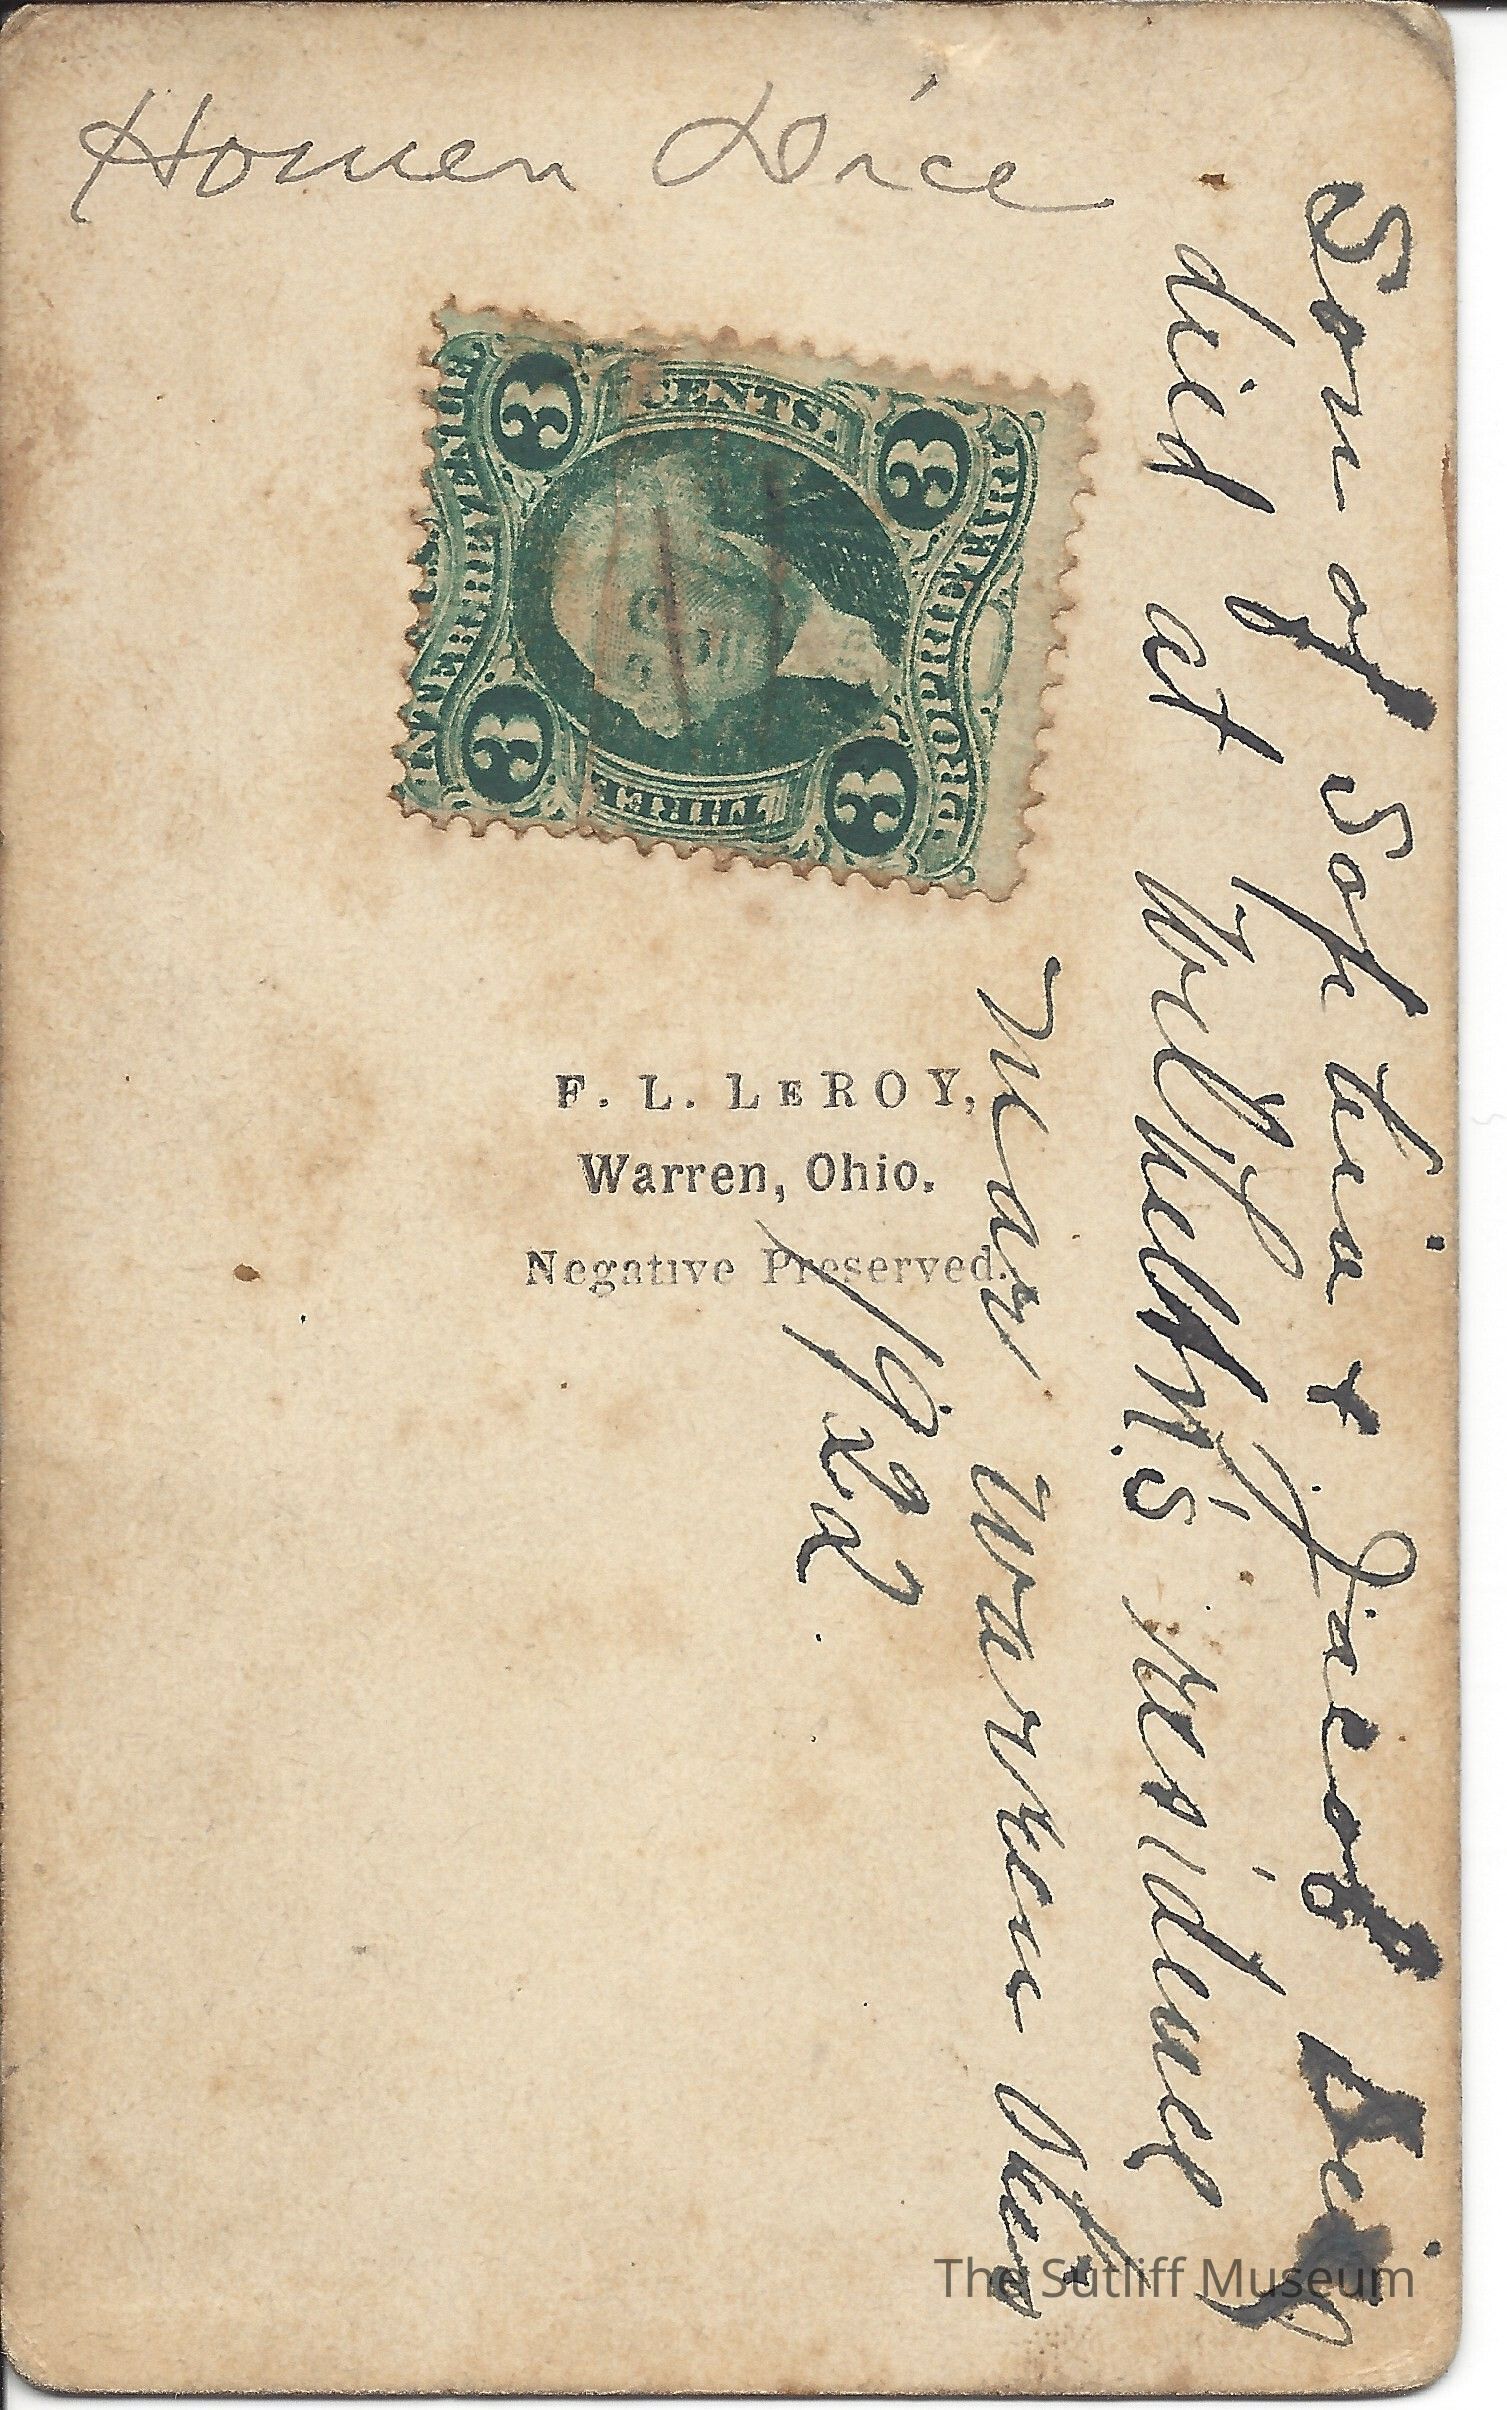 Homen Dice
3 CENTS. 3
U.S. INTER. REVENUE
PROPRIETARY
3 THREE 3
F. L. LEROY,
Warren, Ohio.
Negative Preserved.
Son of Sophia & Jacob
died at residence
near Warren Ohio
1922.
The Sutliff Museum